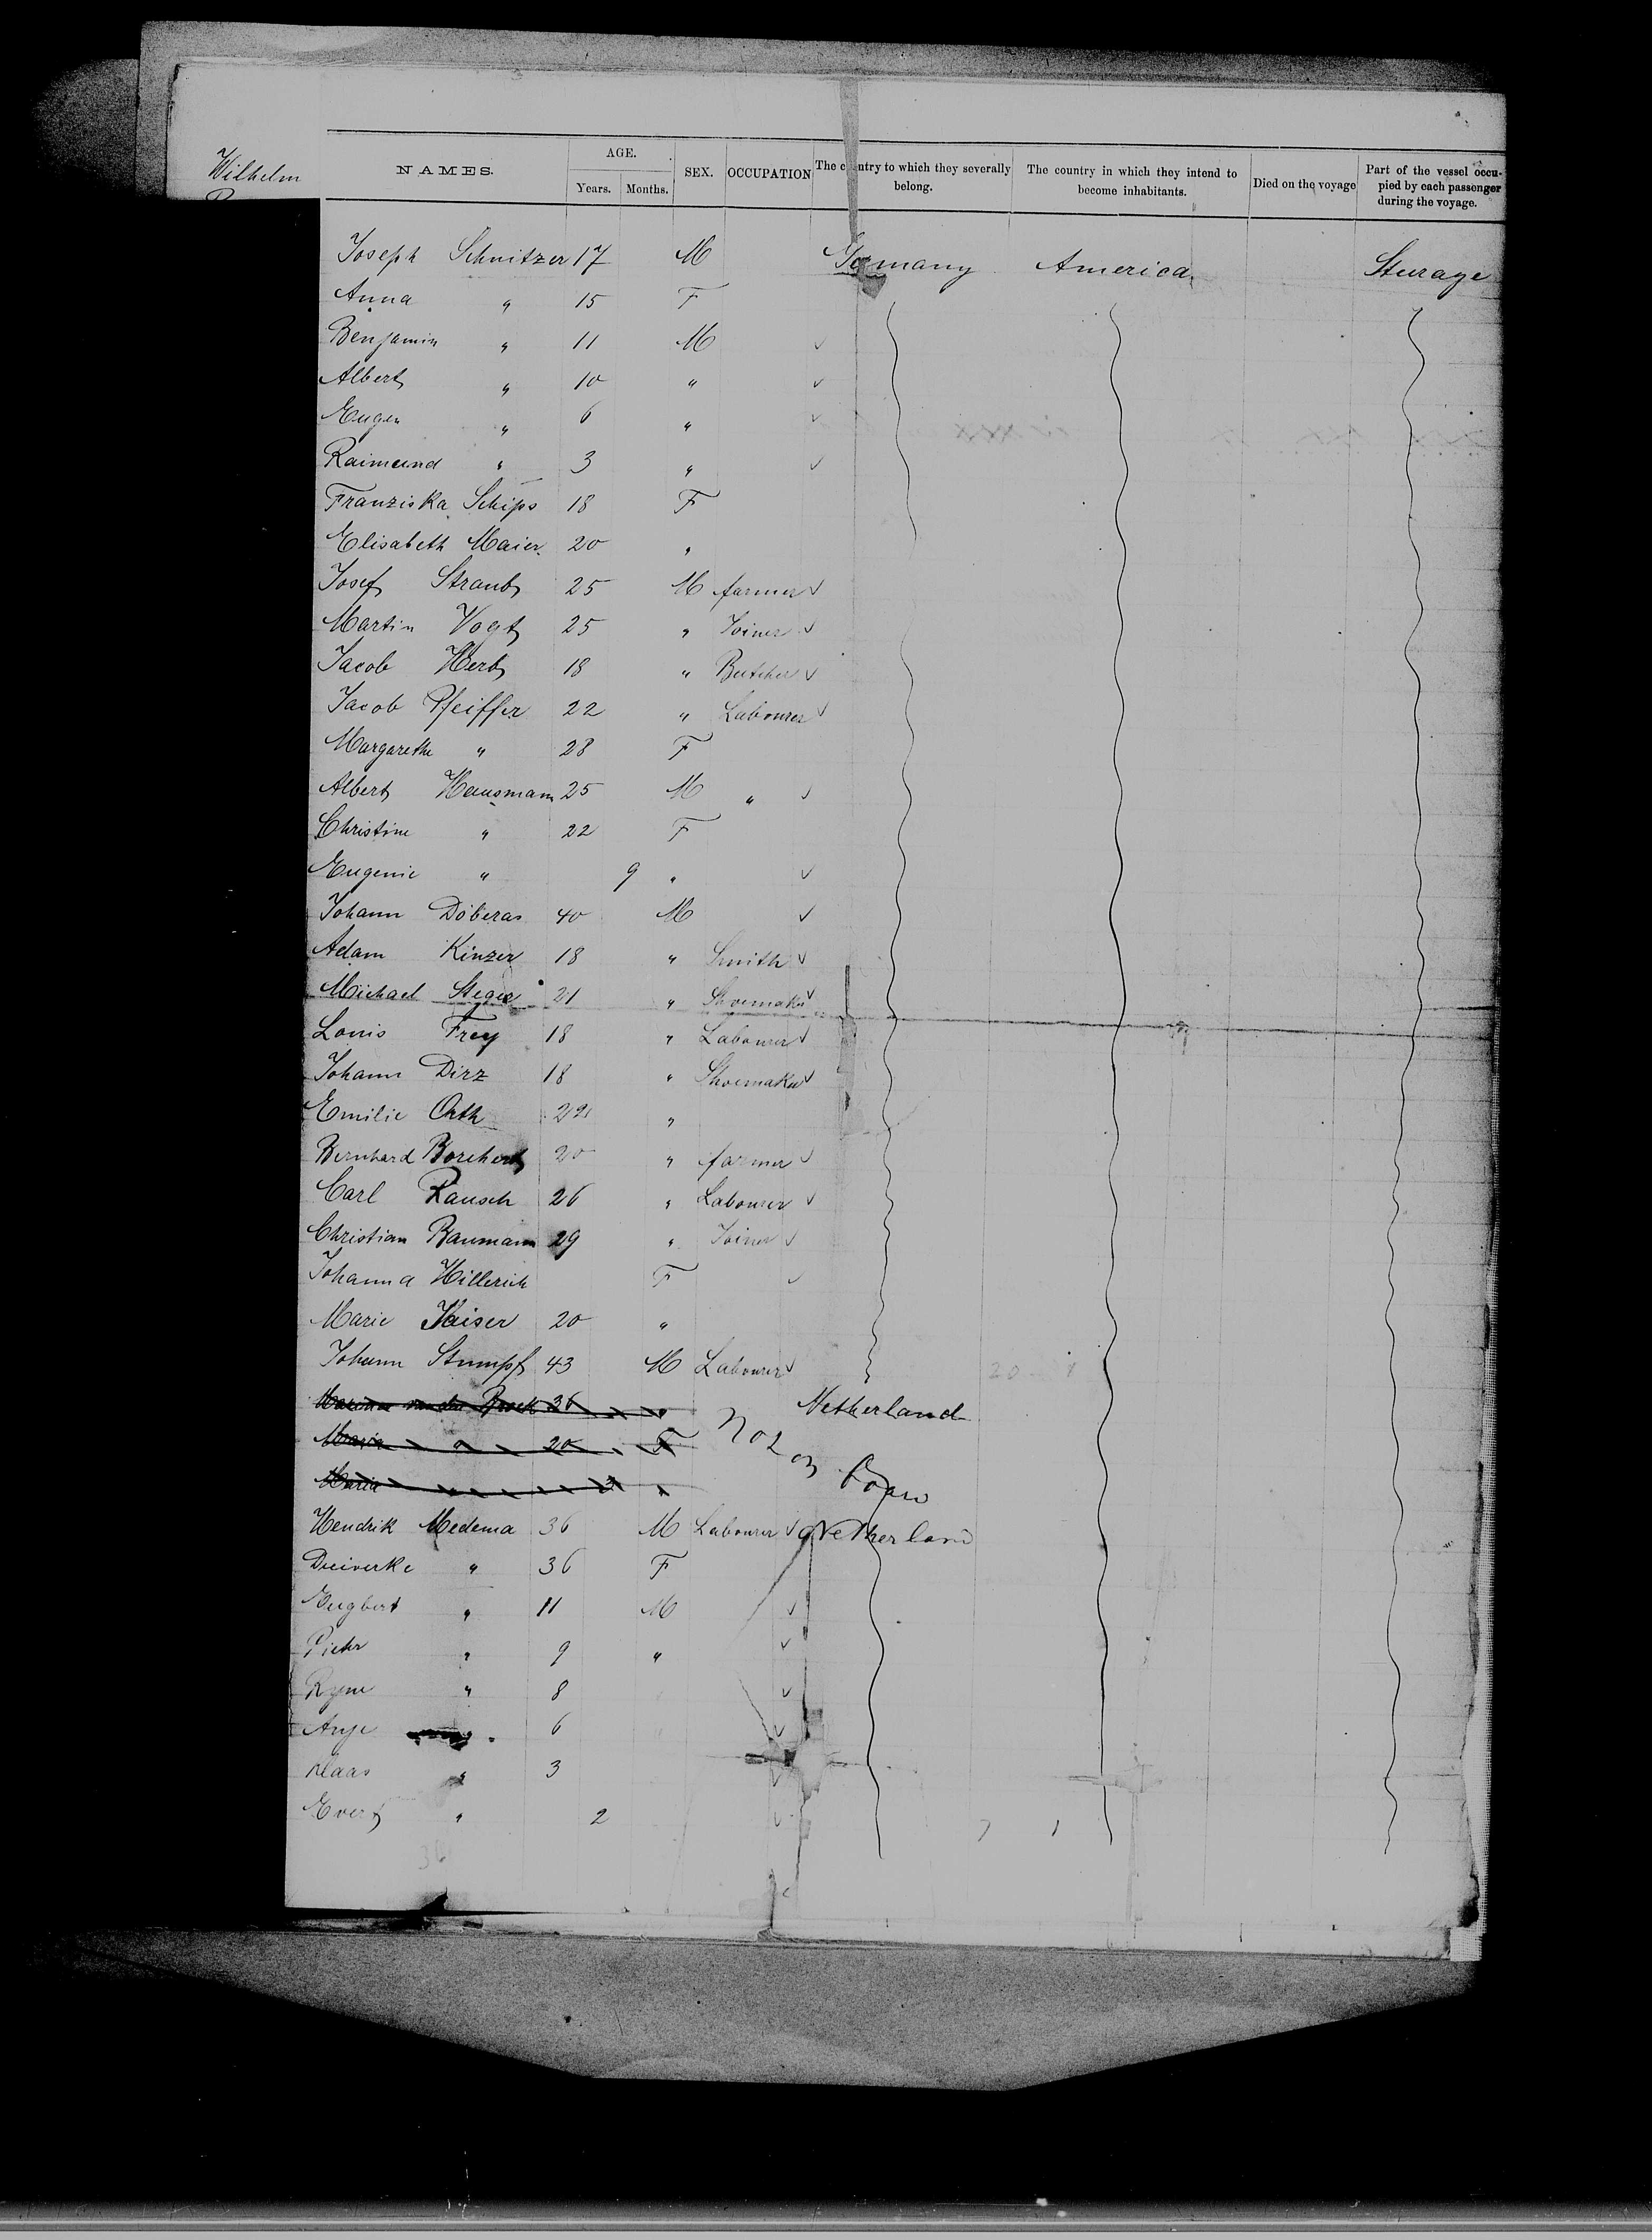 Wilhelm
NAMES. AGE. Years. Months. SEX. OCCUPATION The country to which they severally belong. The country in which they intend to become inhabitants. Died on the voyage Part of the vessel occupied by each passenger during the voyage.
Joseph Schnitzer 17 M Germany America Sturage
Anna " 15 F
Benjamin " 11 M ✓
Albert " 10 " ✓
Eugen " 6 " ✓
Raimund " 3 " ✓
Franziska Schips 18 F
Elisabeth Maier 20 "
Josef Straub 25 M farmer ✓
Martin Vogt 25 " Joiner ✓
Jacob Herb 18 " Butcher ✓
Jacob Pfeiffer 22 " Labourer ✓
Margarethe " 28 F
Albert Hausmann 25 M " ✓
Christine " 22 F
Eugenie " 9 " ✓
Johann Döberas 40 M ✓
Adam Kinzer 18 " Smith ✓
Michael Steger 21 " Shoemaker ✓
Louis Frey 18 " Labourer ✓
Johann Dirz 18 " Shoemaker ✓
Emilie Orth 22 "
Bernhard Borchert 20 " farmer ✓
Carl Rausch 26 " Labourer ✓
Christian Baumann 29 " Joiner ✓
Johanna Hillerich F ✓
Marie Kaiser 20 "
Johann Stumpf 43 M Labourer ✓
36 " Netherland
Maria " 20 F Not on
Maria " "
Hendrik Medema 36 M Labourer ✓ Netherland
" 36 F
" 11 M ✓
Pieter " 9 " ✓
" 8 ✓
Anje " 6 ✓
Klaas " 3 ✓
Evert " 2 ✓